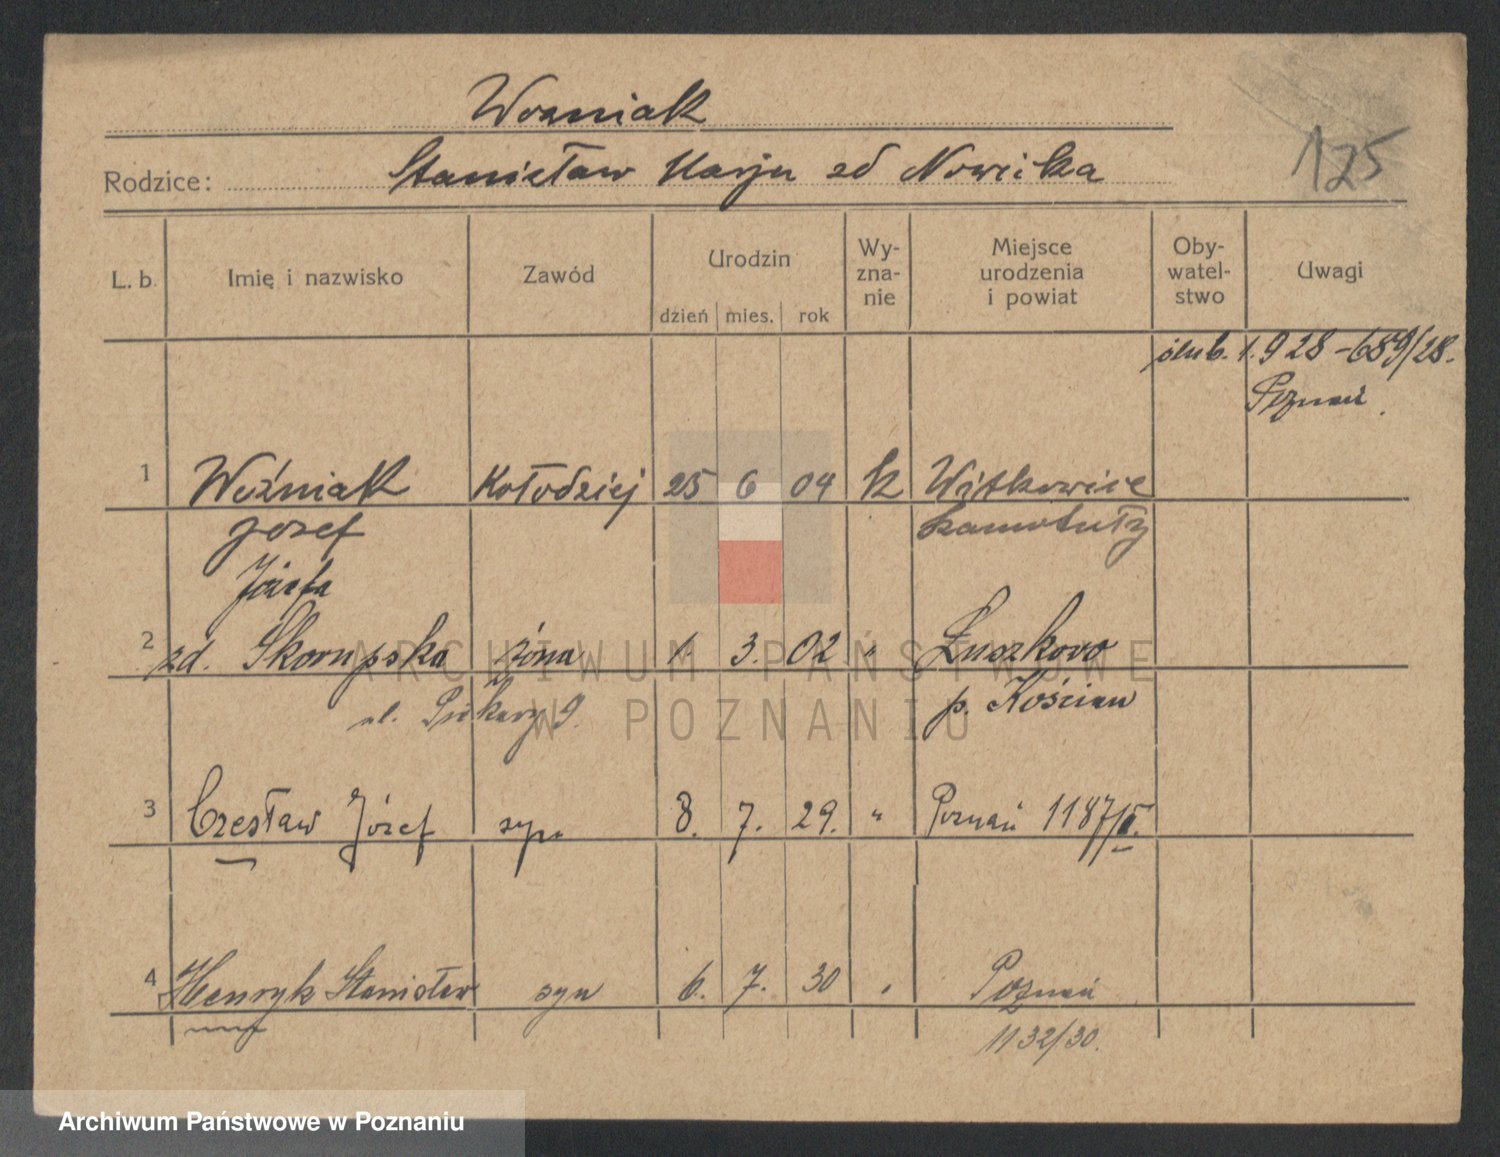 Wozniak
125
Rodzice: Stanisław Marja zd Nowicka
L. b. Imię i nazwisko Zawód Urodzin Wy-zna-nie Miejsce urodzenia i powiat Oby-watel-stwo Uwagi
dzień mies. rok
ślub. 1.9 28 – 689/28.
Poznań.
1 Woźniak Kołodziej 25 6 04 k Witkowice
Jozef Szamotuły
Józefa
2 zd. Skorupska żona 1. 3. 02 " Łuszkowo
ul. Piekary 9. p. Kościan
3 Czesław Józef syn 8. 7. 29. " Poznań 1187/II.
4 Henryk Stanisław syn 6. 7. 30 " Poznań
1132/30.
ARCHIWUM PAŃSTWOWE
W POZNANIU
Archiwum Państwowe w Poznaniu